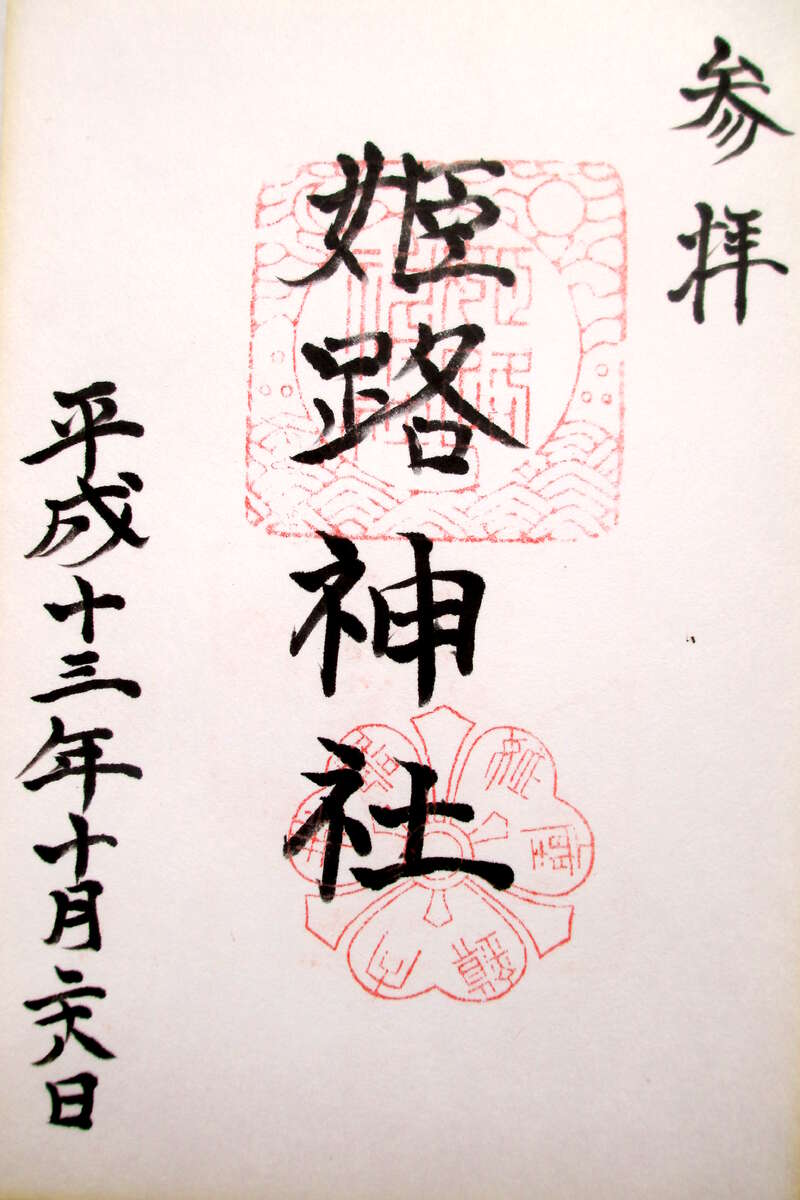 参拝
姫路神社
平成十三年十月二十八日